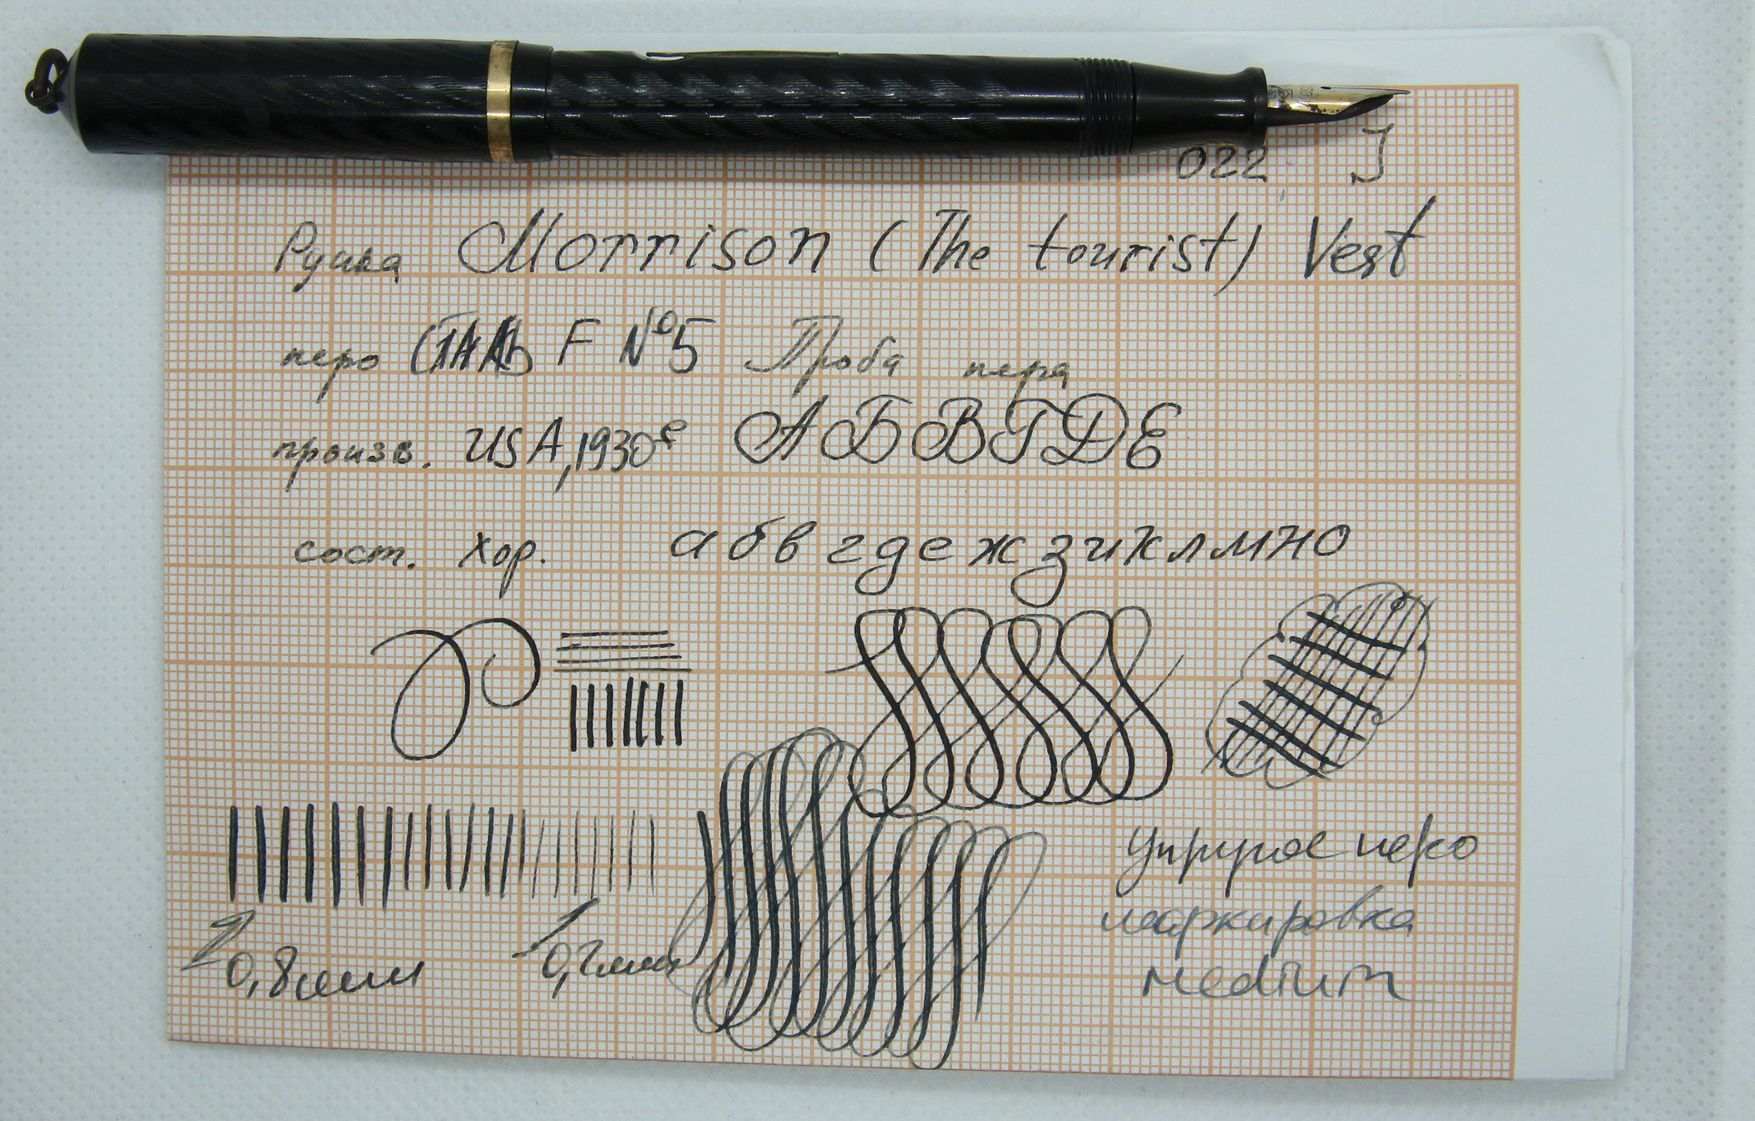 022 J
Ручка Morrison (The tourist) Vest
перо F №5 Проба пера
произв. USA, 1930е АБВГДЕ
сост. хор. абвгдежзиклмно
упругое перо
маркировка
medium
0,8мм 0,2мм